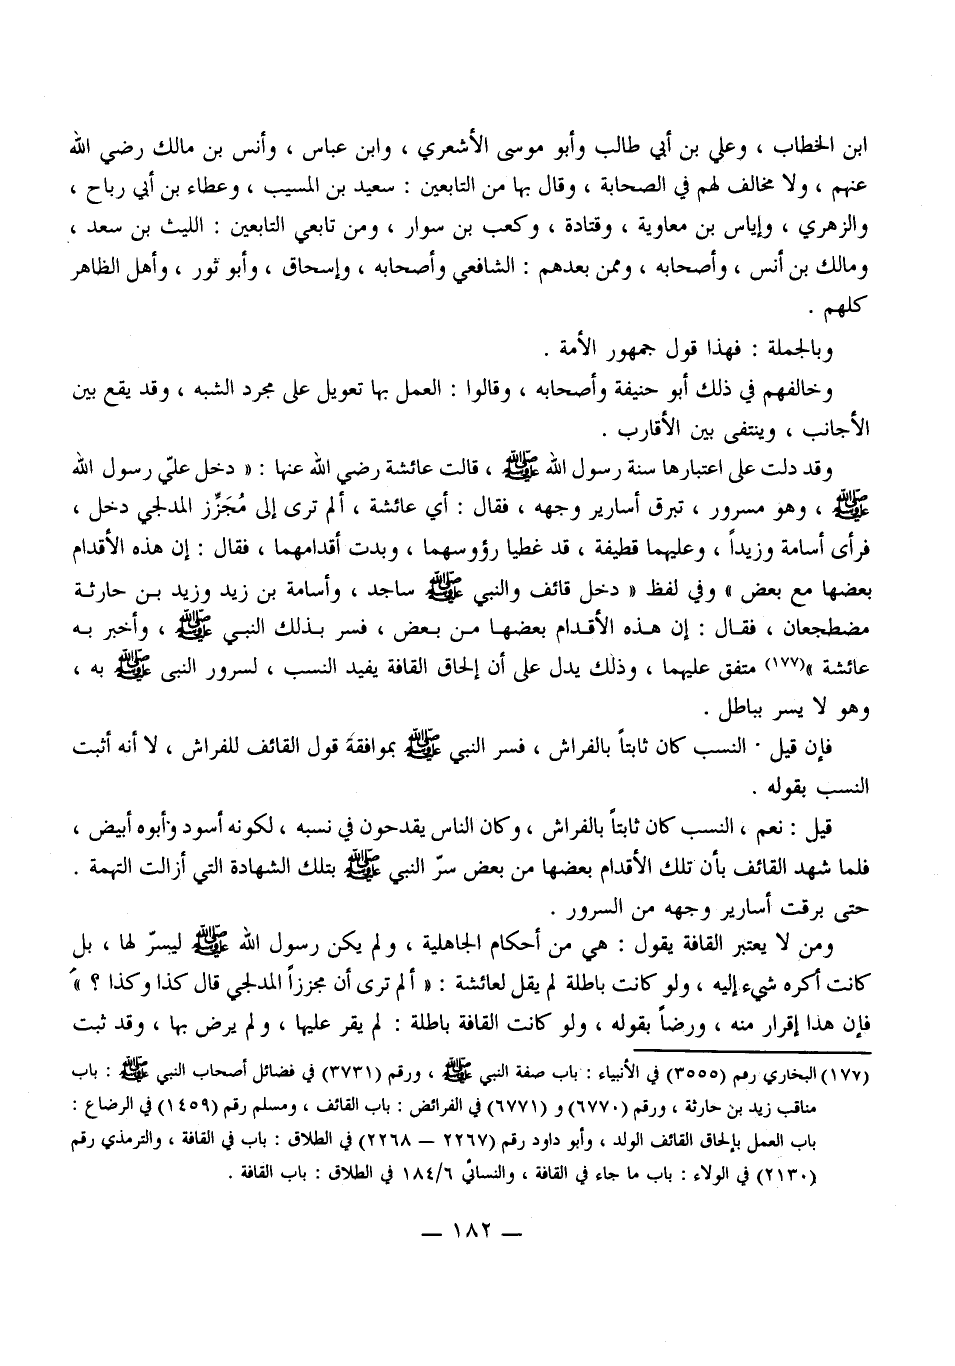 ابن الخطاب ، وعلي بن أبي طالب وأبو موسى الأشعري ، وابن عباس ، وأنس بن مالك رضي الله
عنهم ، ولا مخالف لهم في الصحابة ، وقال بها من التابعين : سعيد بن المسيب ، وعطاء بن أبي رباح ،
والزهري ، وإياس بن معاوية ، وقتادة ، وكعب بن سوار ، ومن تابعي التابعين : الليث بن سعد ،
ومالك بن أنس ، وأصحابه ، وممن بعدهم : الشافعي وأصحابه ، وإسحاق ، وأبو ثور ، وأهل الظاهر
كلهم .
وبالجملة : فهذا قول جمهور الأمة .
وخالفهم في ذلك أبو حنيفة وأصحابه ، وقالوا : العمل بها تعويل على مجرد الشبه ، وقد يقع بين
الأجانب ، وينتفى بين الأقارب .
وقد دلت على اعتبارها سنة رسول الله ﷺ ، قالت عائشة رضي الله عنها : « دخل عليّ رسول الله
ﷺ ، وهو مسرور ، تبرق أسارير وجهه ، فقال : أي عائشة ، ألم ترى إلى مُجَزِّز المدلجي دخل ،
فرأى أسامة وزيداً ، وعليهما قطيفة ، قد غطيا رؤوسهما ، وبدت أقدامهما ، فقال : إن هذه الأقدام
بعضها مع بعض » وفي لفظ « دخل قائف والنبي ﷺ ساجد ، وأسامة بن زيد وزيد بن حارثة
مضطجعان ، فقال : إن هذه الأقدام بعضها من بعض ، فسر بذلك النبي ﷺ ، وأخبر به
عائشة »(١٧٧) متفق عليهما ، وذلك يدل على أن إلحاق القافة يفيد النسب ، لسرور النبى ﷺ به ،
وهو لا يسر بباطل .
فإن قيل · النسب كان ثابتاً بالفراش ، فسر النبي ﷺ بموافقة قول القائف للفراش ، لا أنه أثبت
النسب بقوله .
قيل : نعم ، النسب كان ثابتاً بالفراش ، وكان الناس يقدحون في نسبه ، لكونه أسود وأبوه أبيض ،
فلما شهد القائف بأن تلك الأقدام بعضها من بعض سرّ النبي ﷺ بتلك الشهادة التي أزالت التهمة .
حتى برقت أسارير وجهه من السرور .
ومن لا يعتبر القافة يقول : هي من أحكام الجاهلية ، ولم يكن رسول الله ﷺ ليسرّ لها ، بل
كانت أكره شيء إليه ، ولو كانت باطلة لم يقل لعائشة : « ألم ترى أن مجززاً المدلجي قال كذا وكذا ؟ »
فإن هذا إقرار منه ، ورضاً بقوله ، ولو كانت القافة باطلة : لم يقر عليها ، ولم يرض بها ، وقد ثبت
(١٧٧) البخاري رقم (٣٥٥٥) في الأنبياء : باب صفة النبي ﷺ ، ورقم (٣٧٣١) في فضائل أصحاب النبي ﷺ : باب
مناقب زيد بن حارثة ، ورقم (٦٧٧٠) و (٦٧٧١) في الفرائض : باب القائف ، ومسلم رقم (١٤٥٩) في الرضاع :
باب العمل بإلحاق القائف الولد ، وأبو داود رقم (٢٢٦٧ — ٢٢٦٨) في الطلاق : باب في القافة ، والترمذي رقم
(٢١٣٠) في الولاء : باب ما جاء في القافة ، والنسائي ١٨٤/٦ في الطلاق : باب القافة .
— ١٨٢ —